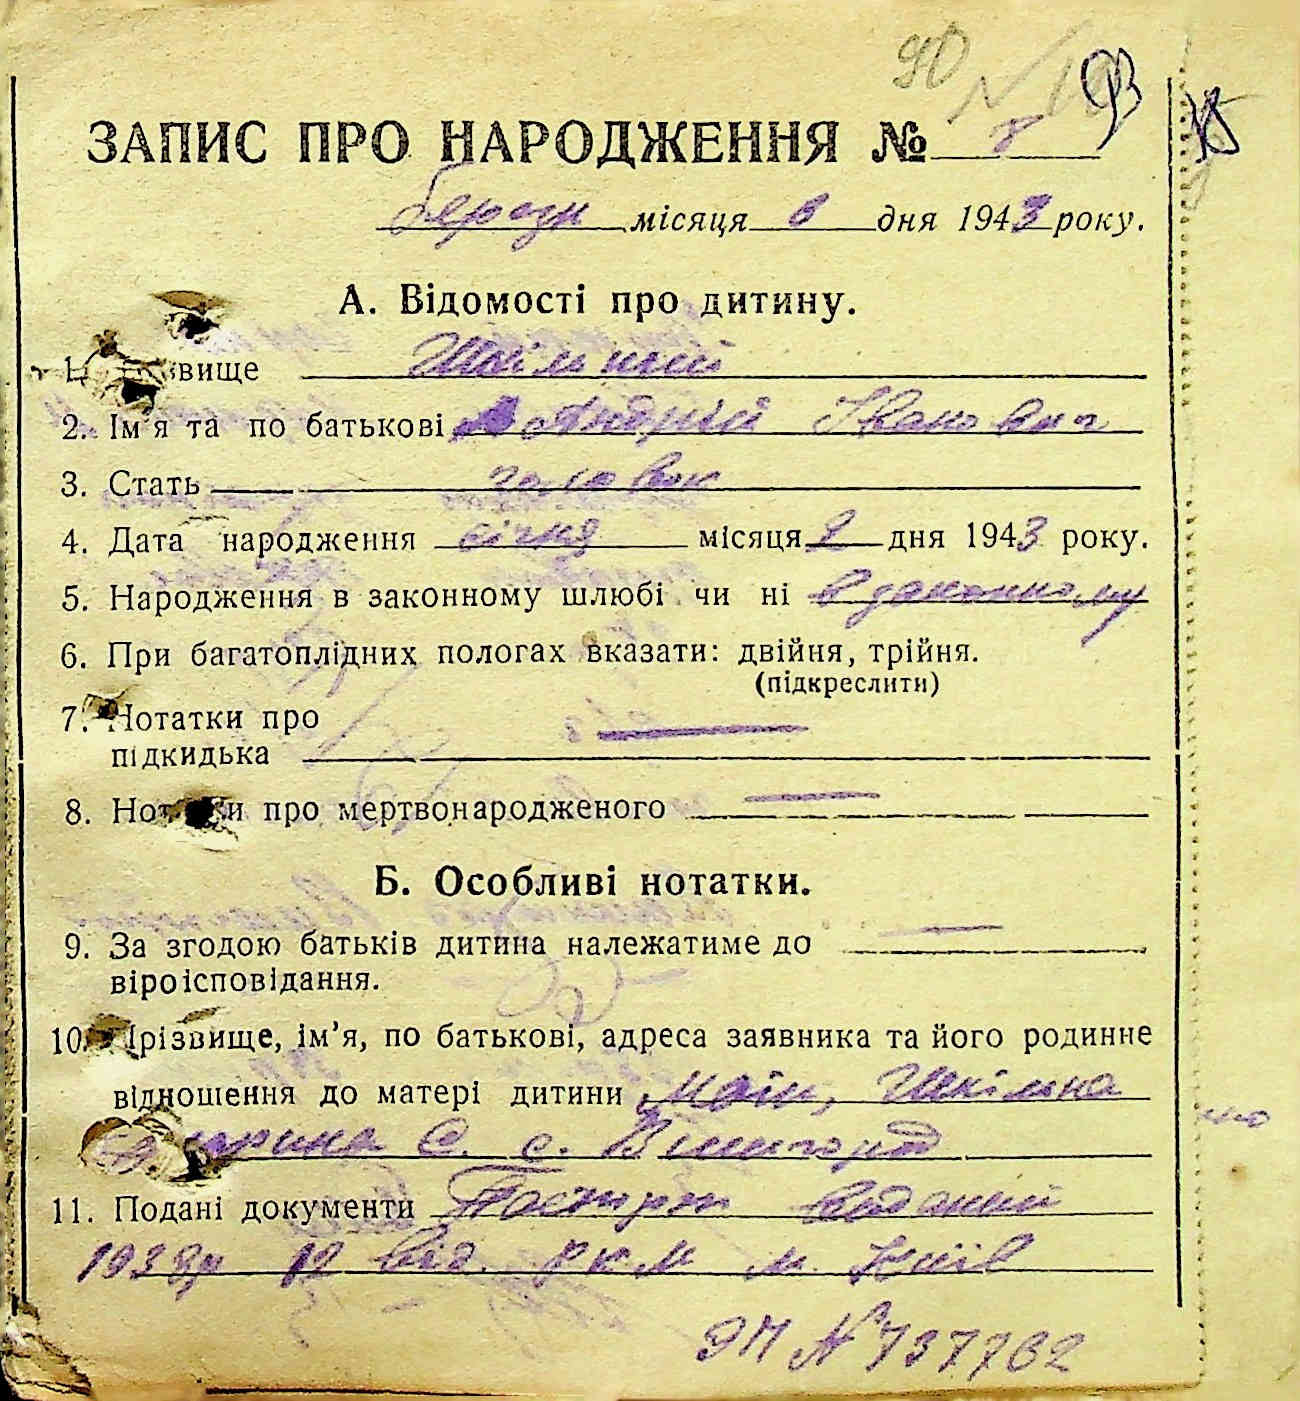 90 № 93
ЗАПИС ПРО НАРОДЖЕННЯ №
березн місяця 6 дня 1943 року.
А. Відомості про дитину.
1. вище
2. Ім'я та по батькові Андрій Іванович
3. Стать чоловік
4. Дата народження січня місяця 2 дня 1943 року.
5. Народження в законному шлюбі чи ні в законному
6. При багатоплідних пологах вказати: двійня, трійня.
(підкреслити)
7. Нотатки про
підкидька
8. Нотатки про мертвонародженого
Б. Особливі нотатки.
9. За згодою батьків дитина належатиме до
віроісповідання.
10. Прізвище, ім'я, по батькові, адреса заявника та його родинне
відношення до матері дитини Шкільна
Є. с. Вишгород
11. Подані документи Паспорт виданий
1938р 12 від. РКМ м. Київ
ЭП № 737762